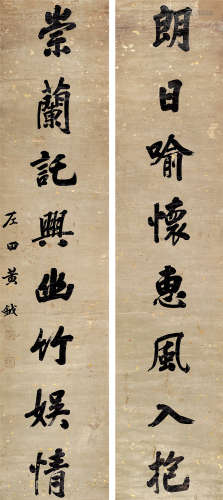 朗日喻懷惠風入抱
崇蘭託興幽竹娛情
左田黃鉞